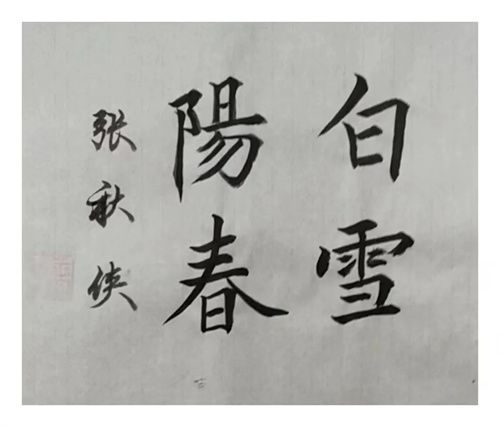 白雪
陽春
张秋侠